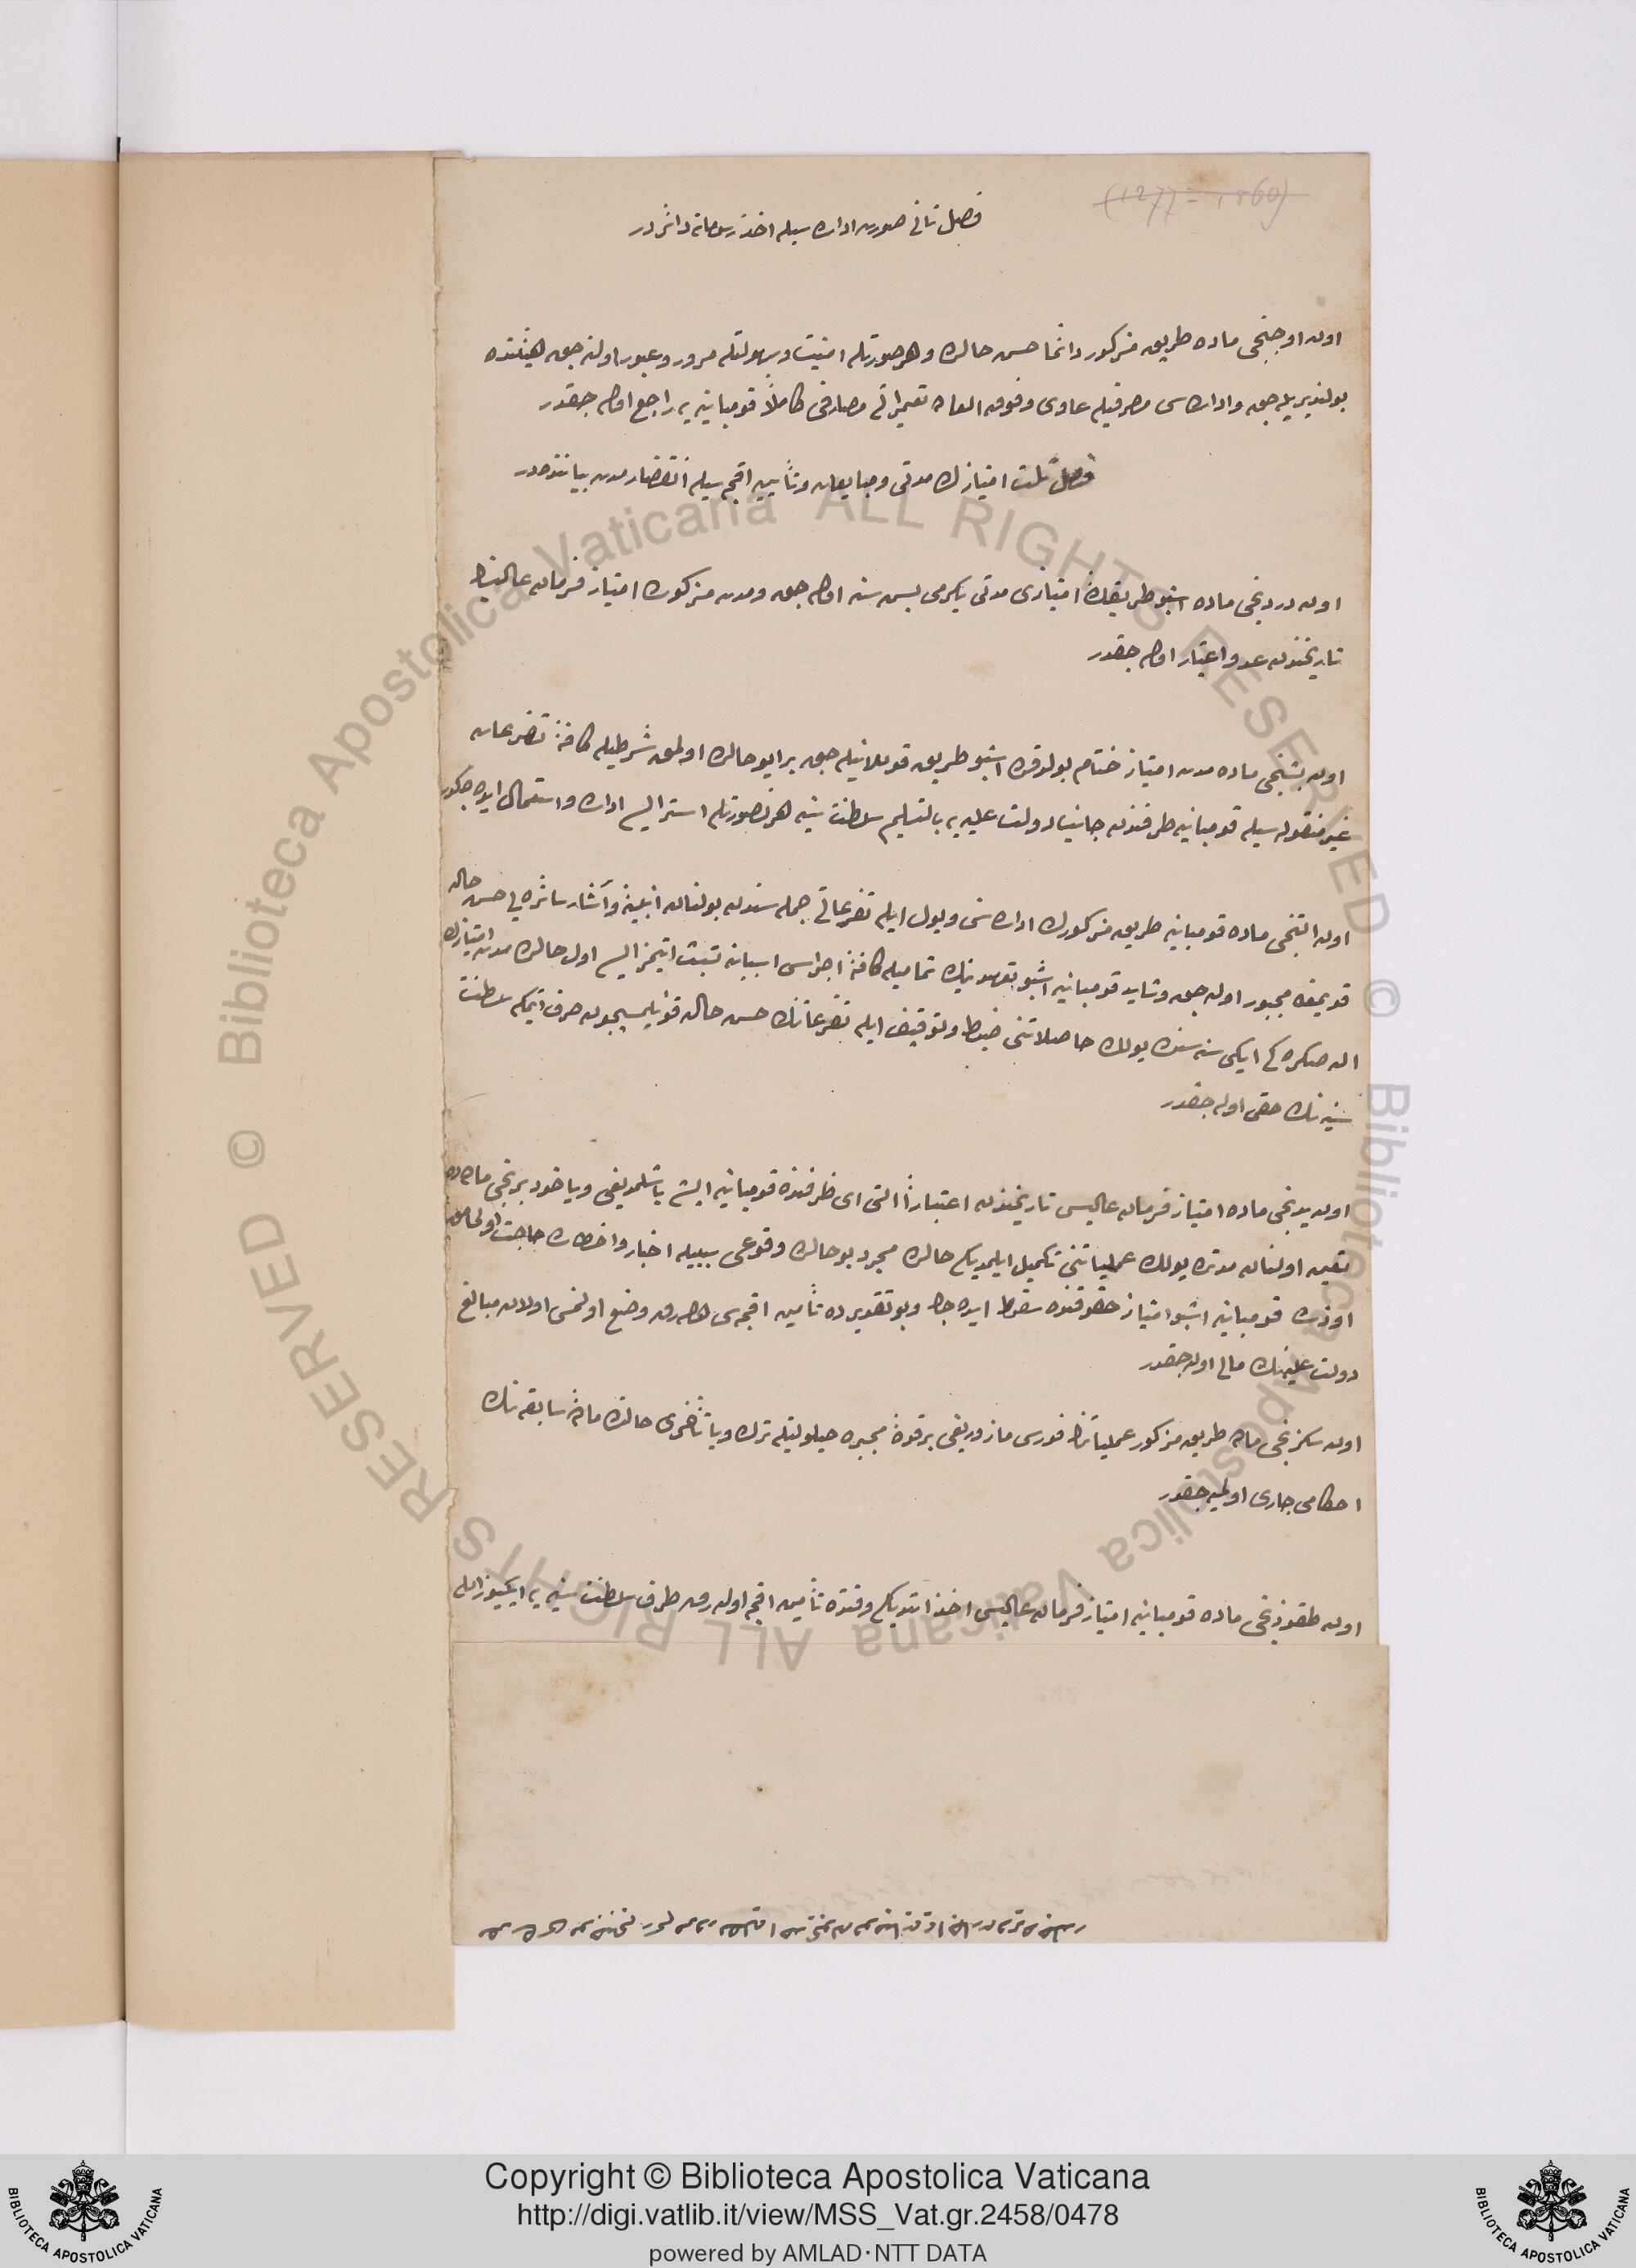 (1277 = 1860)
فصل ثانی صورت اداره سیله اخذ رسوماته دائردر
اون اوچنجی ماده طریق مذکور دائما حسن حالده و هر صورتله امنیت و سهولتله مرور و عبور اولنه جق هیئتده
بولندیریله جق و اداره سی مصرفیله عادی و فوق العاده تعمیراتی مصارفی کاملاً قومپانیه یه راجع اوله جقدر
فصل ثالث امتیازك مدتی و مبایعات و تأمین اقچه سیله انقضای مدت بیاننده در
اون دردنجی ماده اشبو طریقك امتیازی مدتی یکرمی بش سنه اوله جق و مدت مذکوره امتیاز فرمان عالیسنك
تاریخندن عد و اعتبار اوله جقدر
اون بشنجی ماده مدت امتیاز ختام بولدقده اشبو طریق قوللانیله جق بر ایو حالده اولمق شرطیله کافۀ تفرعات
غیر منقوله سیله قومپانیه طرفندن جانب دولت علیه یه بالتسلیم سلطنت سنیه هر نصورتله استر ایسه اداره و استعمال ایده جکدر
اون التنجی ماده قومپانیه طریق مذکورك اداره سنی و یول ایله تفرعاتی جمله سندن بولنان ابنیه و آثار سائره یی حسن حالده
قویمغه مجبور اوله جق و شاید قومپانیه اشبو تعهدینك تمامیله کافۀ اجراسی اسبابنه تشبث ایتمز ایسه اول حالده مدت امتیازك
الك صکره کی ایکی سنه سنده یولك حاصلاتنی ضبط و توقیف ایله تفرعاتنك حسن حاله قونلمسیچون صرف ایتمك سلطنت
سنیه نك حقی اوله جقدر
اون یدنجی ماده امتیاز فرمان عالیسی تاریخندن اعتباراً التی ای ظرفنده قومپانیه ایشه باشلمدیغی و یاخود برنجی ماده ده
تعیین اولنان مدتده یولك عملیاتنی تکمیل ایلمدیکی حالده مجرد بو حالك وقوعی سببیله اخبار و اخطاره حاجت اولمامق
اوزره قومپانیه اشبو امتیاز حقوقندن سقوط ایده جك و بو تقدیرده تأمین اقچه سی اوله رق وضع اولنمش اولان مبالغ
دولت علیه نك مالی اوله جقدر
اون سکزنجی ماده طریق مذکور عملیاتنك فورس ماژور یعنی بر قوۀ مجبره حیلولتیله ترك و یا تأخری حالنده مادۀ سابقه نك
احکامی جاری اولمیه جقدر
اون طقوزنجی ماده قومپانیه امتیاز فرمان عالیسی اخذ ایتدیکی وقتده تأمین اقچه اوله رق طرف سلطنت سنیه یه ایکیوز اللی